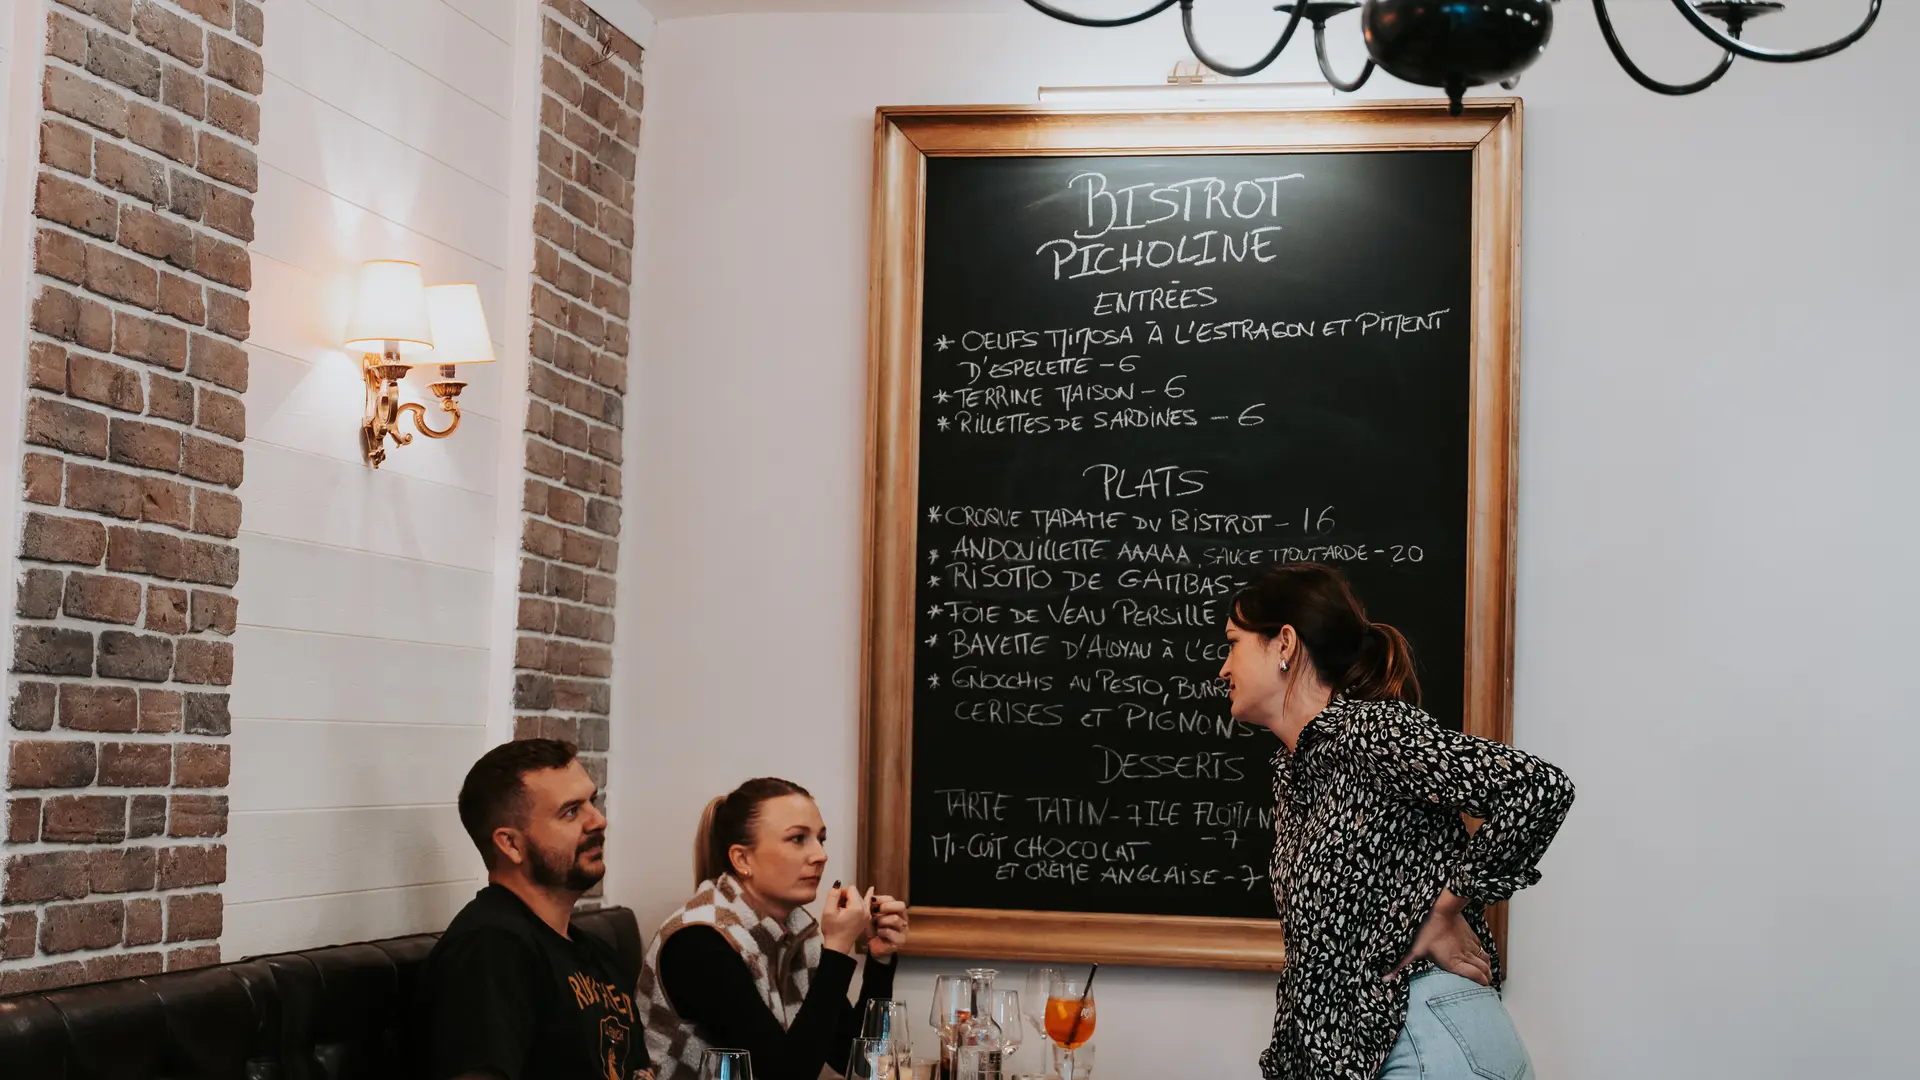 BISTROT
PICHOLINE
ENTRÉES
* OEUFS MIMOSA À L'ESTRAGON ET PIMENT
D'ESPELETTE - 6
* TERRINE MAISON - 6
* RILLETTES DE SARDINES - 6
PLATS
* CROQUE MADAME DU BISTROT - 16
* ANDOUILLETTE AAAAA, SAUCE MOUTARDE - 20
* RISOTTO DE GAMBAS -
* FOIE DE VEAU PERSILLÉ
* BAVETTE D'ALOYAU À L'
* GNOCCHIS AU PESTO,
CERISES ET PIGNONS -
DESSERTS
TARTE TATIN - 7 ILE
- 7
MI-CUIT CHOCOLAT
ET CRÈME ANGLAISE - 7